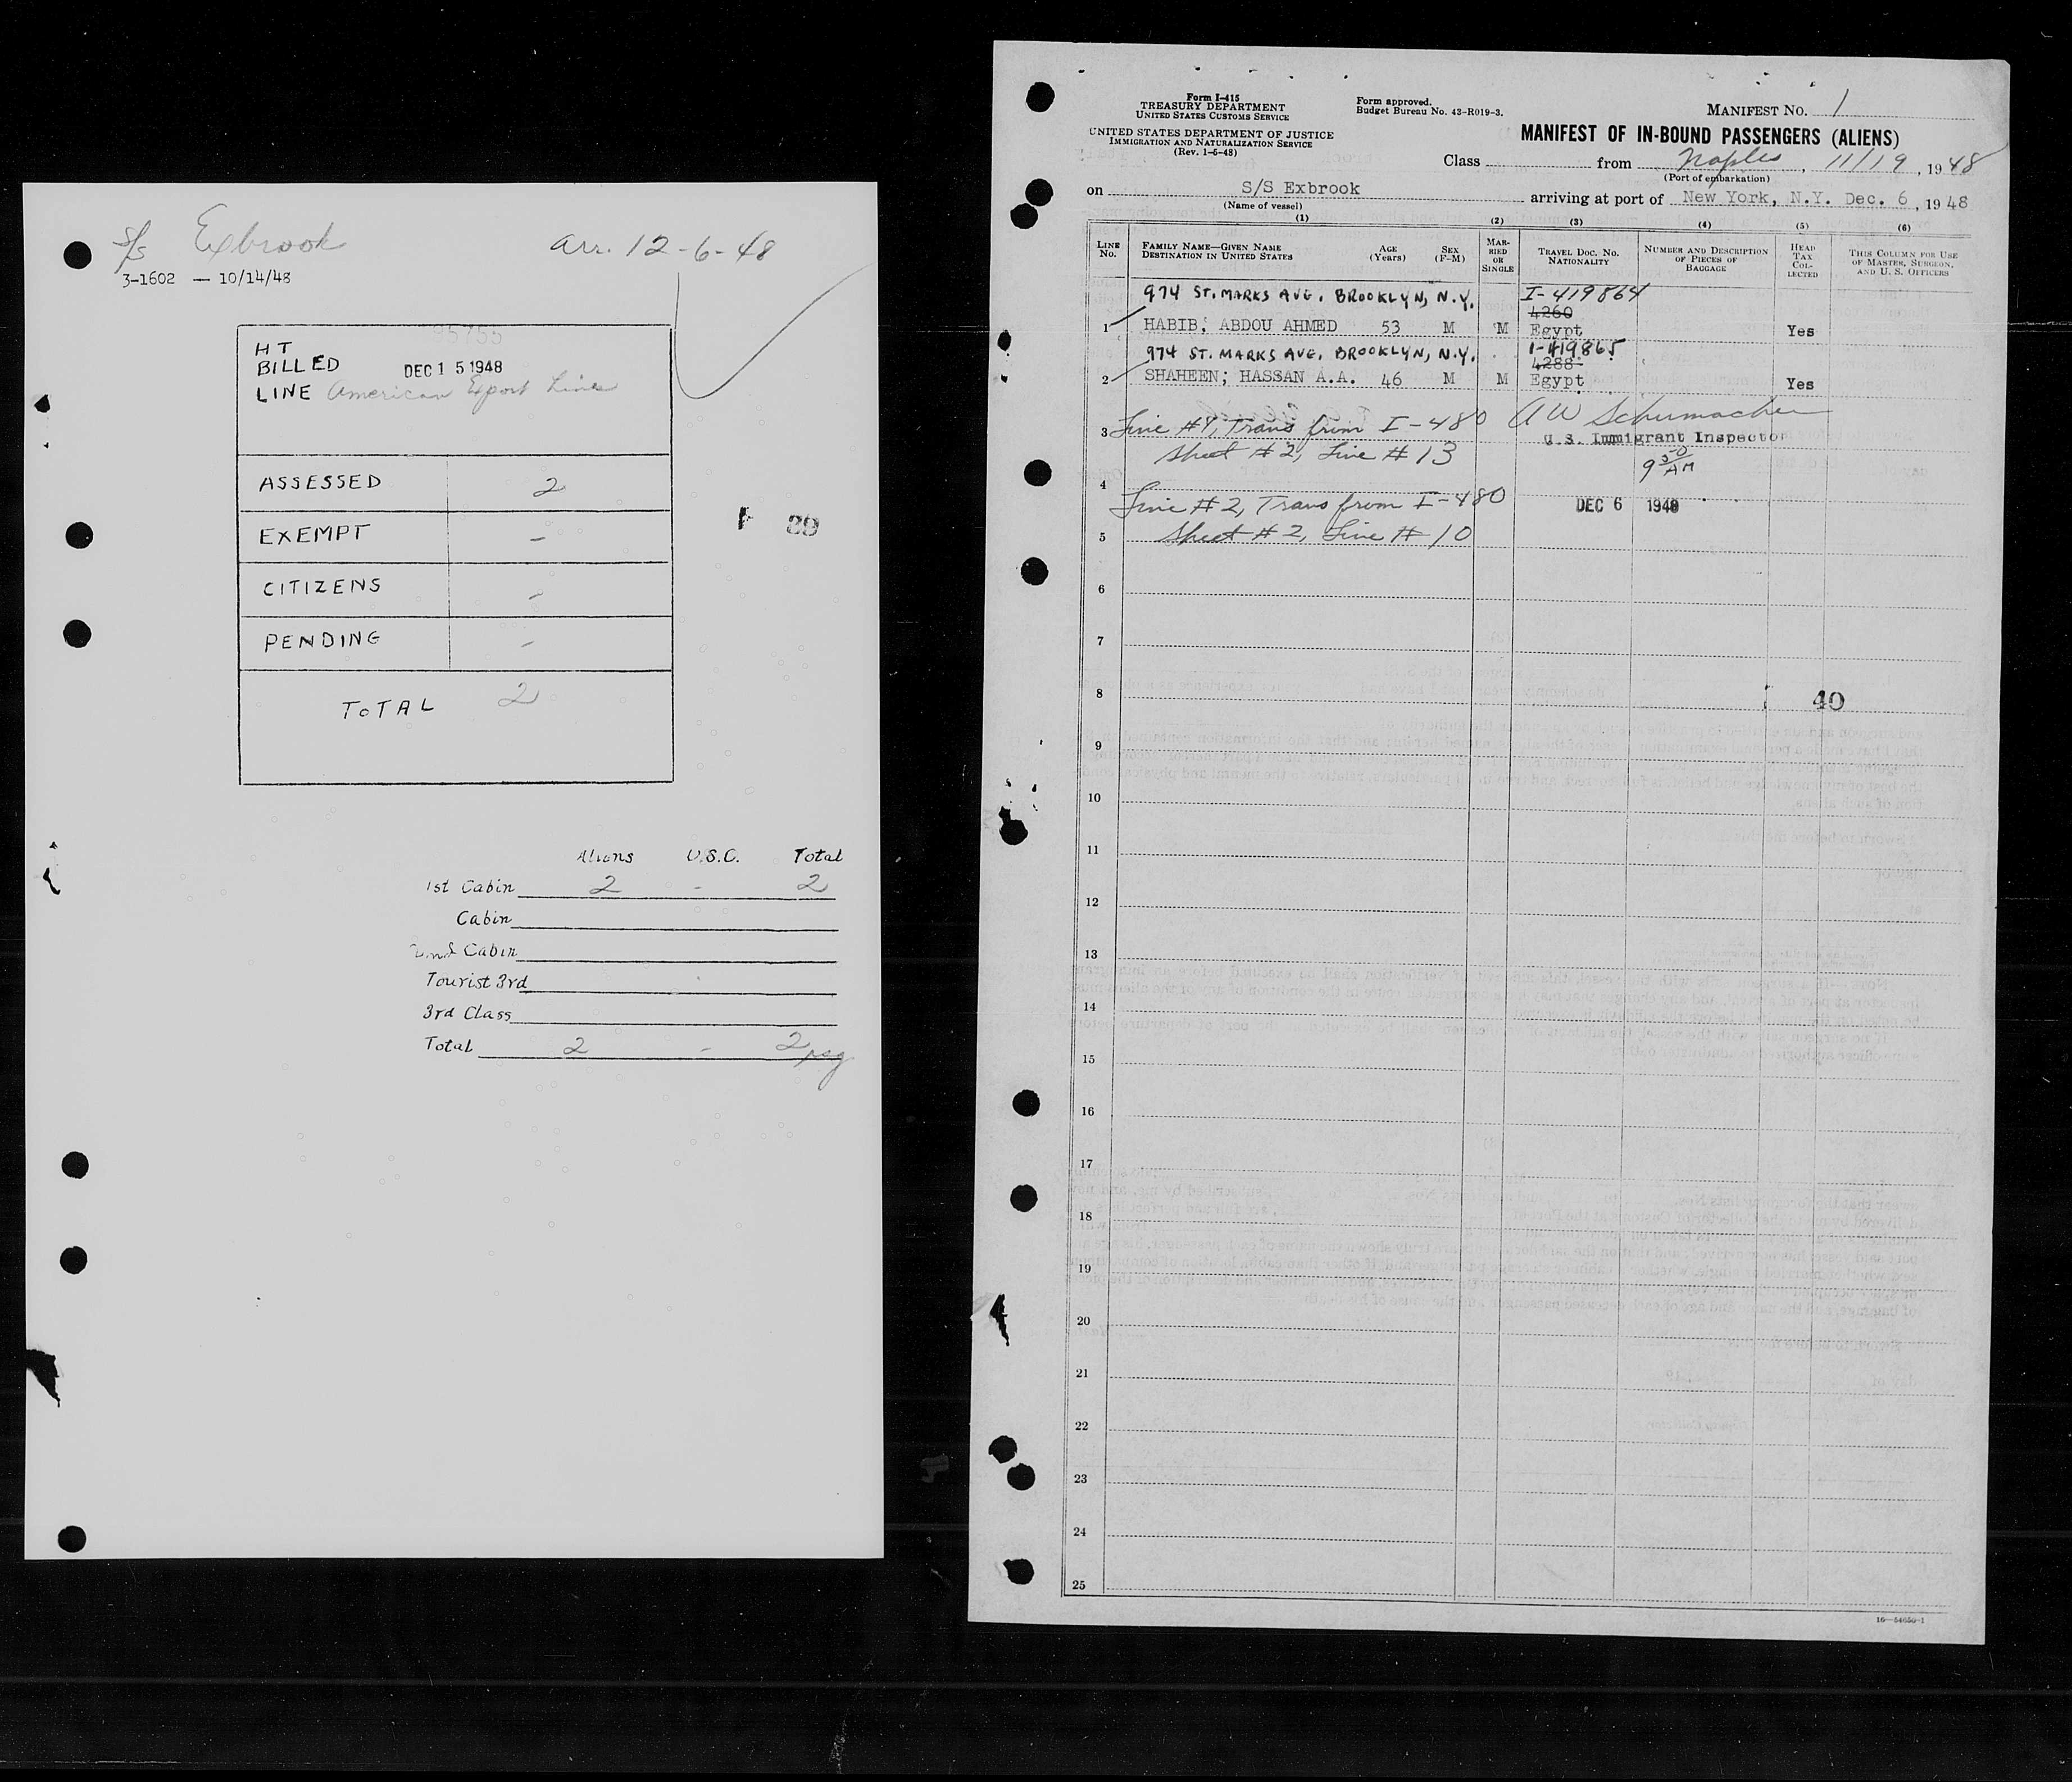 S/S Exbrook arr. 12-6-48
3-1602 — 10/14/48
95755
HT
BILLED DEC 15 1948
LINE American Export Lines
ASSESSED 2
EXEMPT -
CITIZENS -
PENDING -
TOTAL 2
39
Aliens U.S.C. Total
1st Cabin 2 - 2
Cabin
2nd Cabin
Tourist 3rd
3rd Class
Total 2 - 2 psg
Form I-415
TREASURY DEPARTMENT
UNITED STATES CUSTOMS SERVICE
UNITED STATES DEPARTMENT OF JUSTICE
IMMIGRATION AND NATURALIZATION SERVICE
(Rev. 1-6-48)
Form approved.
Budget Bureau No. 43-R019-3.
MANIFEST NO. 1
MANIFEST OF IN-BOUND PASSENGERS (ALIENS)
Class from Naples, 11/19, 1948
(Port of embarkation)
on S/S Exbrook arriving at port of New York, N.Y. Dec. 6, 1948
(Name of vessel)
(1) (2) (3) (4) (5) (6)
LINE NO. FAMILY NAME—GIVEN NAME DESTINATION IN UNITED STATES AGE (YEARS) SEX (F-M) MARRIED OR SINGLE TRAVEL DOC. NO. NATIONALITY NUMBER AND DESCRIPTION OF PIECES OF BAGGAGE HEAD TAX COLLECTED THIS COLUMN FOR USE OF MASTER, SURGEON, AND U. S. OFFICERS
974 ST. MARKS AVE. BROOKLYN, N.Y. I-419864
4260
1 HABIB, ABDOU AHMED 53 M M Egypt Yes
974 ST. MARKS AVE. BROOKLYN, N.Y. I-419865
4288
2 SHAHEEN, HASSAN A.A. 46 M M Egypt Yes
3 Line #1, Trans from I-480 A W Schumacher
U.S. Immigrant Inspector
Sheet #2, Line #13 9 50 AM
4
Line #2, Trans from I-480 DEC 6 1948
5 Sheet #2, Line #10
6
7
8 40
9
10
11
12
13
14
15
16
17
18
19
20
21
22
23
24
25
16—54656-1